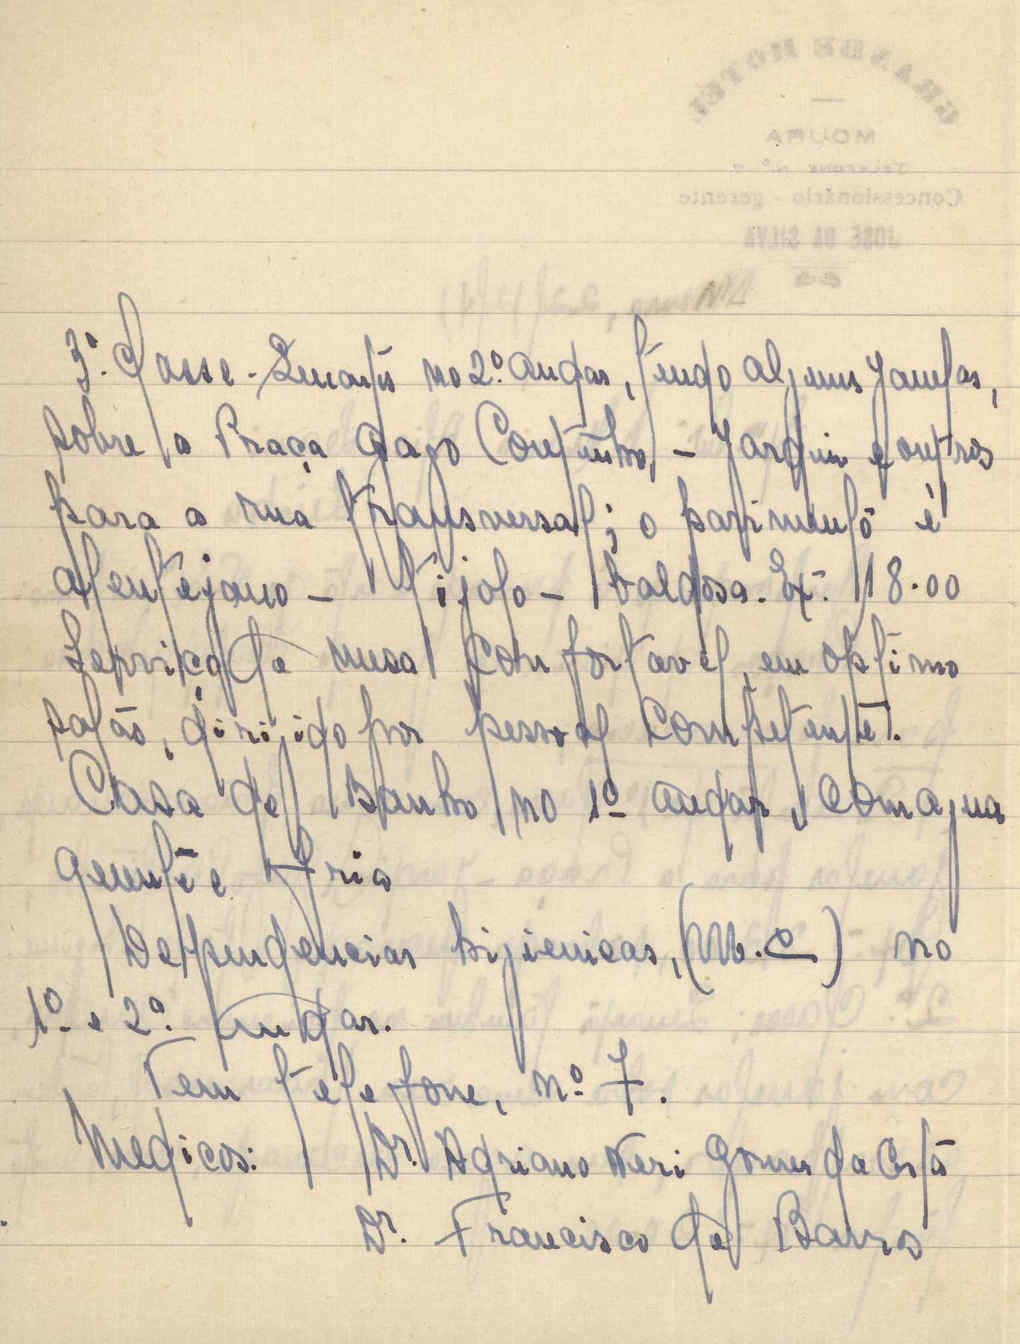 3ª. Classe - Quartos no 2º. andar, tendo algumas janelas,
sobre a Praça Gago Coutinho, - Jardim e outros
para a rua transversal; o pavimento é
alentejano - tijolo - baldosa. 18.00
Serviço de mesa confortavel, em optimo
salão, dirigido por pessoal competente.
Casa de Banho no 1º andar, com agua
quente e fria
Dependencias higienicas, (W.C) no
1º e 2º. andar.
Tem telefone, nº 7.
Medicos: Dr. Adriano Neri Gomes da Costa
Dr. Francisco de Barros
GRANDE HOTEL
MOURA
TELEFONE Nº 7
Concessionário - gerente
JOSÉ DA SILVA